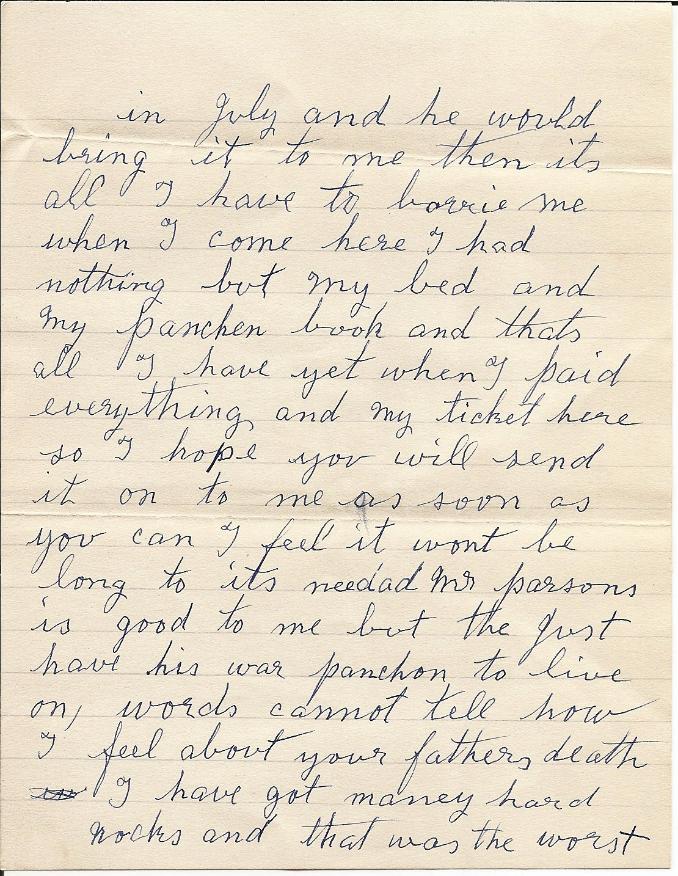 in July and he would
bring it to me then its
all I have to borrie me
when I come here I had
nothing but my bed and
my panchen book and thats
all I have yet when I paid
everything and my ticket here
so I hope you will send
it on to me as soon as
you can I feel it wont be
long to its needad Mr parsons
is good to me but the Just
have his war panchon to live
on, words cannot tell how
I feel about your fathers death
I have got maney hard
nocks and that was the worst